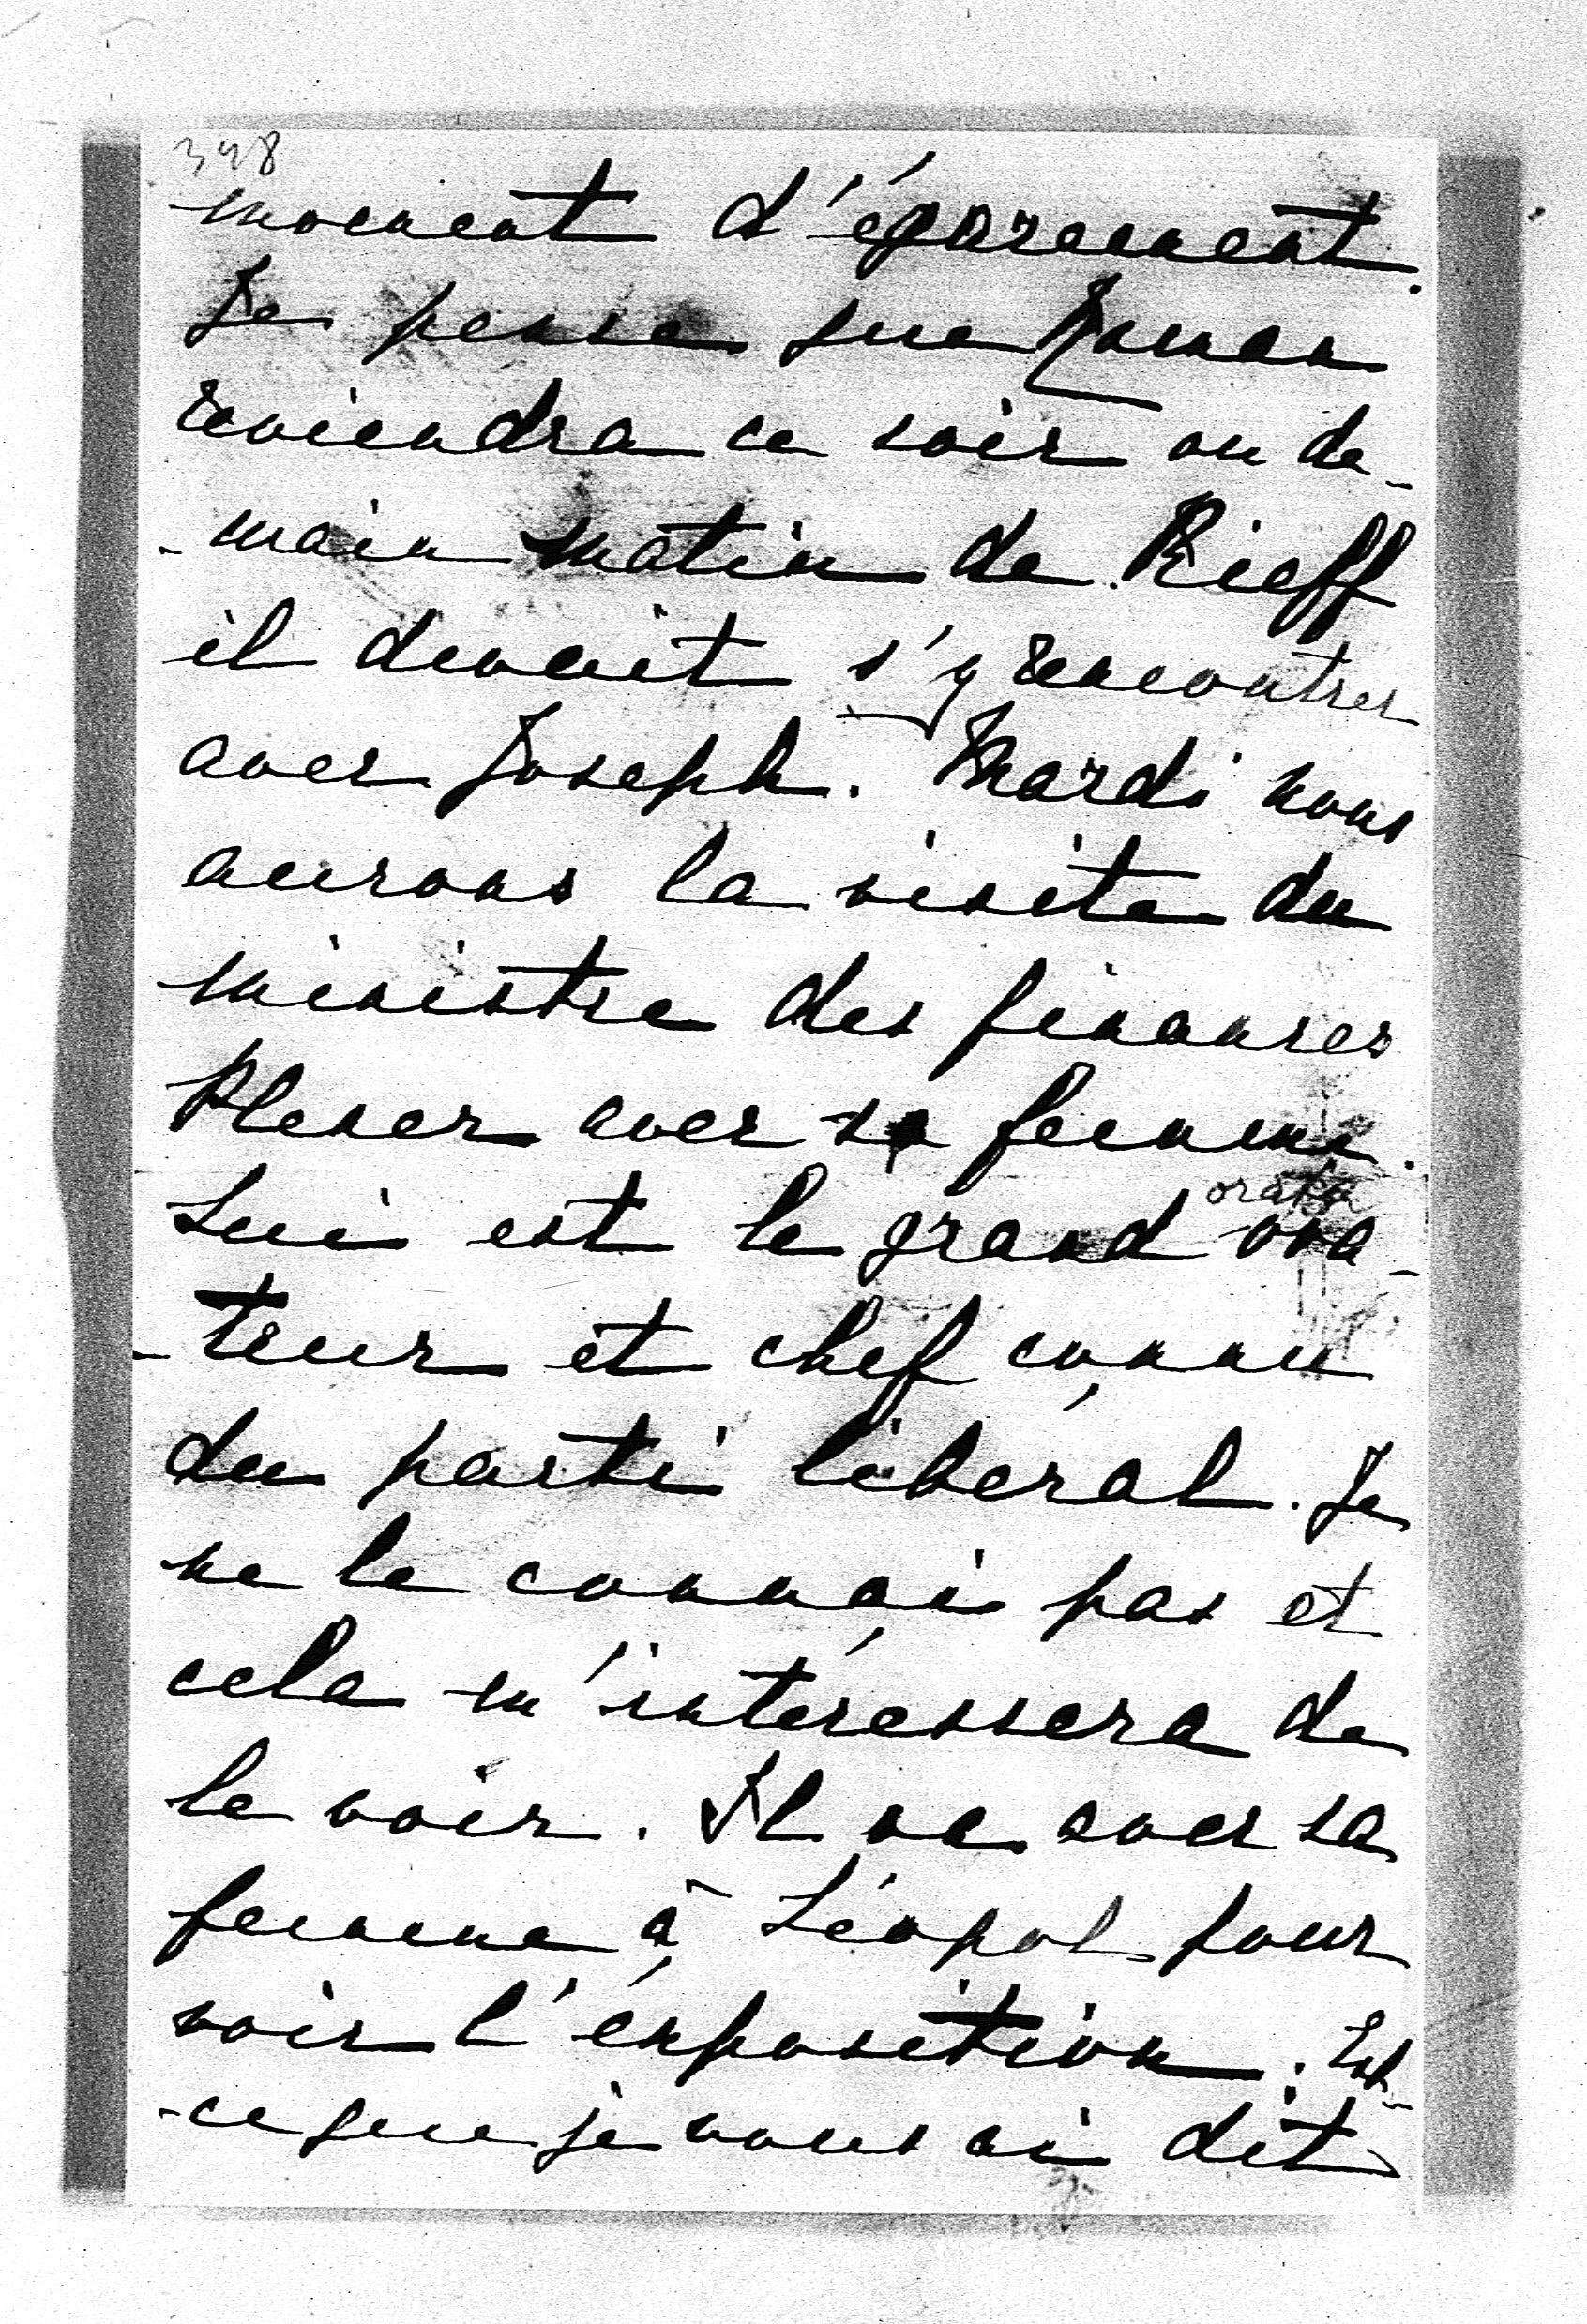 348
moment d'égarement.
Je pense que Roman
reviendra ce soir ou de-
-main matin de Kieff
il devait s'y rencontrer
avec Joseph. Mardi nous
aurons la visite du
ministre des finances
Plener avec sa femme.
Lui est le grand ora-
-teur et chef connu
du parti libéral. Je
ne le connais pas et
cela m'intéressera de
le voir. Il va avec sa
femme à Léopol pour
voir l'exposition. Est-
-ce que je vous ai dit